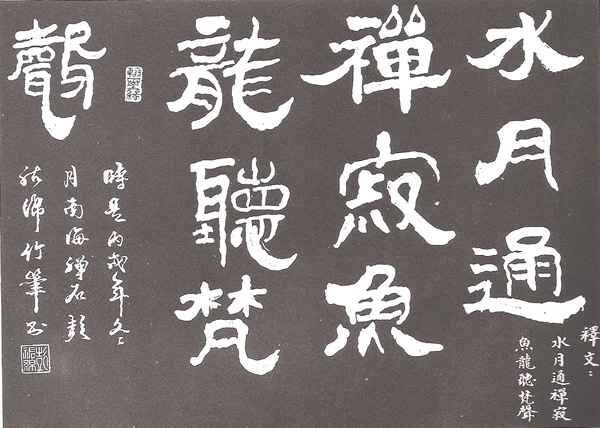 水月通
禪寂魚
龍聽梵
聲
丙戌年
月南海禪石彭
竹筆書
釋文：
水月通禪寂
魚龍聽梵聲